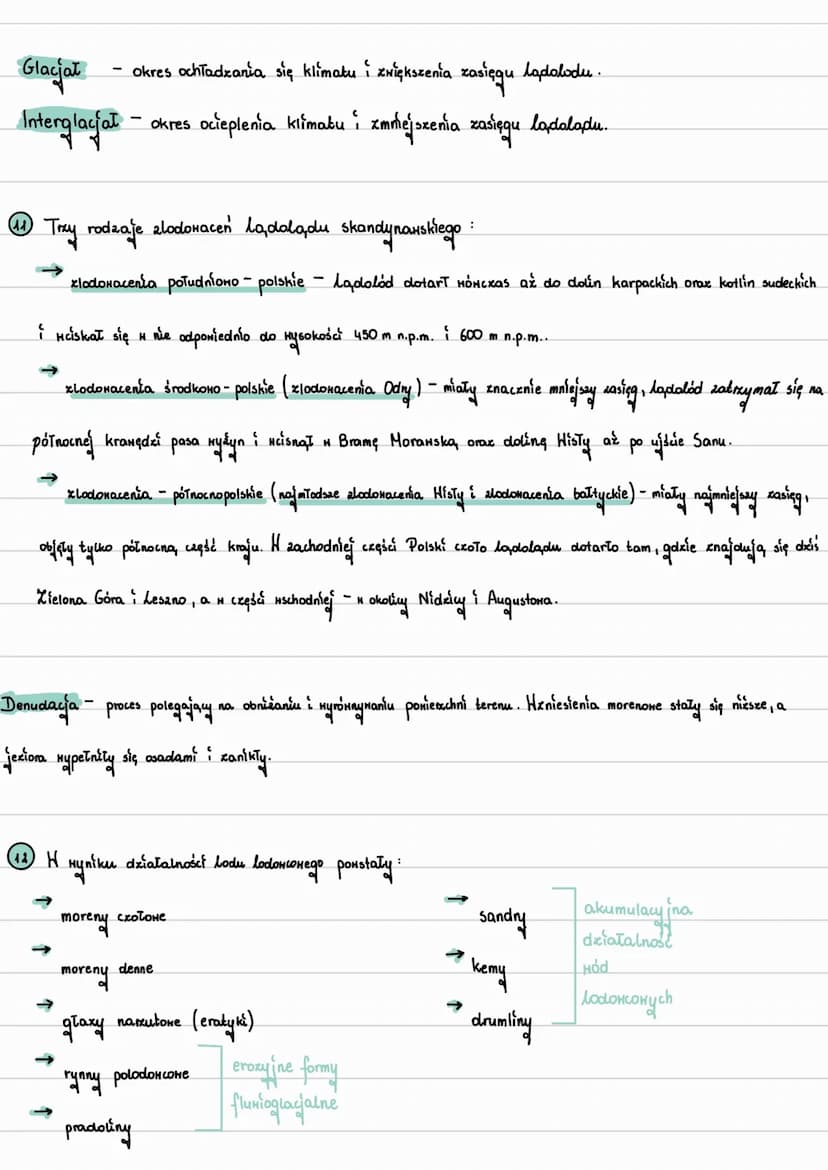 Glacjał - okres ochładzania się klimatu i zwiększenia zasięgu lądolodu.
Interglacjał - okres ocieplenia klimatu i zmniejszenia zasięgu lądolądu.
11 Trzy rodzaje zlodowaceń lądolądu skandynawskiego :
→ zlodowacenia południowo - polskie - Lądolód dotarł wówczas aż do dolin karpackich oraz kotlin sudeckich
i wciskał się w nie odpowiednio do wysokości 450 m n.p.m. i 600 m n.p.m..
→ zlodowacenia środkowo - polskie (zlodowacenia Odry) - miały znacznie mniejszy zasięg, lądolód zatrzymał się na
północnej krawędzi pasa wyżyn i wcisnął w Bramę Morawską oraz dolinę Wisły aż po ujście Sanu.
→ zlodowacenia - północnopolskie (najmłodsze zlodowacenia Wisły i zlodowacenia bałtyckie) - miały najmniejszy zasięg,
objęły tylko północną część kraju. W zachodniej części Polski czoło lądolądu dotarło tam, gdzie znajdują się dziś
Zielona Góra i Leszno, a w części wschodniej - w okolicy Nidzicy i Augustowa.
Denudacja - proces polegający na obniżaniu i wyrównywaniu powierzchni terenu. Wzniesienia morenowe stały się niższe, a
jeziora wypełniły się osadami i zanikły.
12 W wyniku działalności lodu lodowcowego powstały :
→ moreny czołowe
→ moreny denne
→ głazy narzutowe (eratyki)
→ rynny polodowcowe
→ pradoliny
erozyjne formy
fluwioglacjalne
→ sandry
→ kemy
→ drumliny
akumulacyjna
działalność
wód
lodowcowych